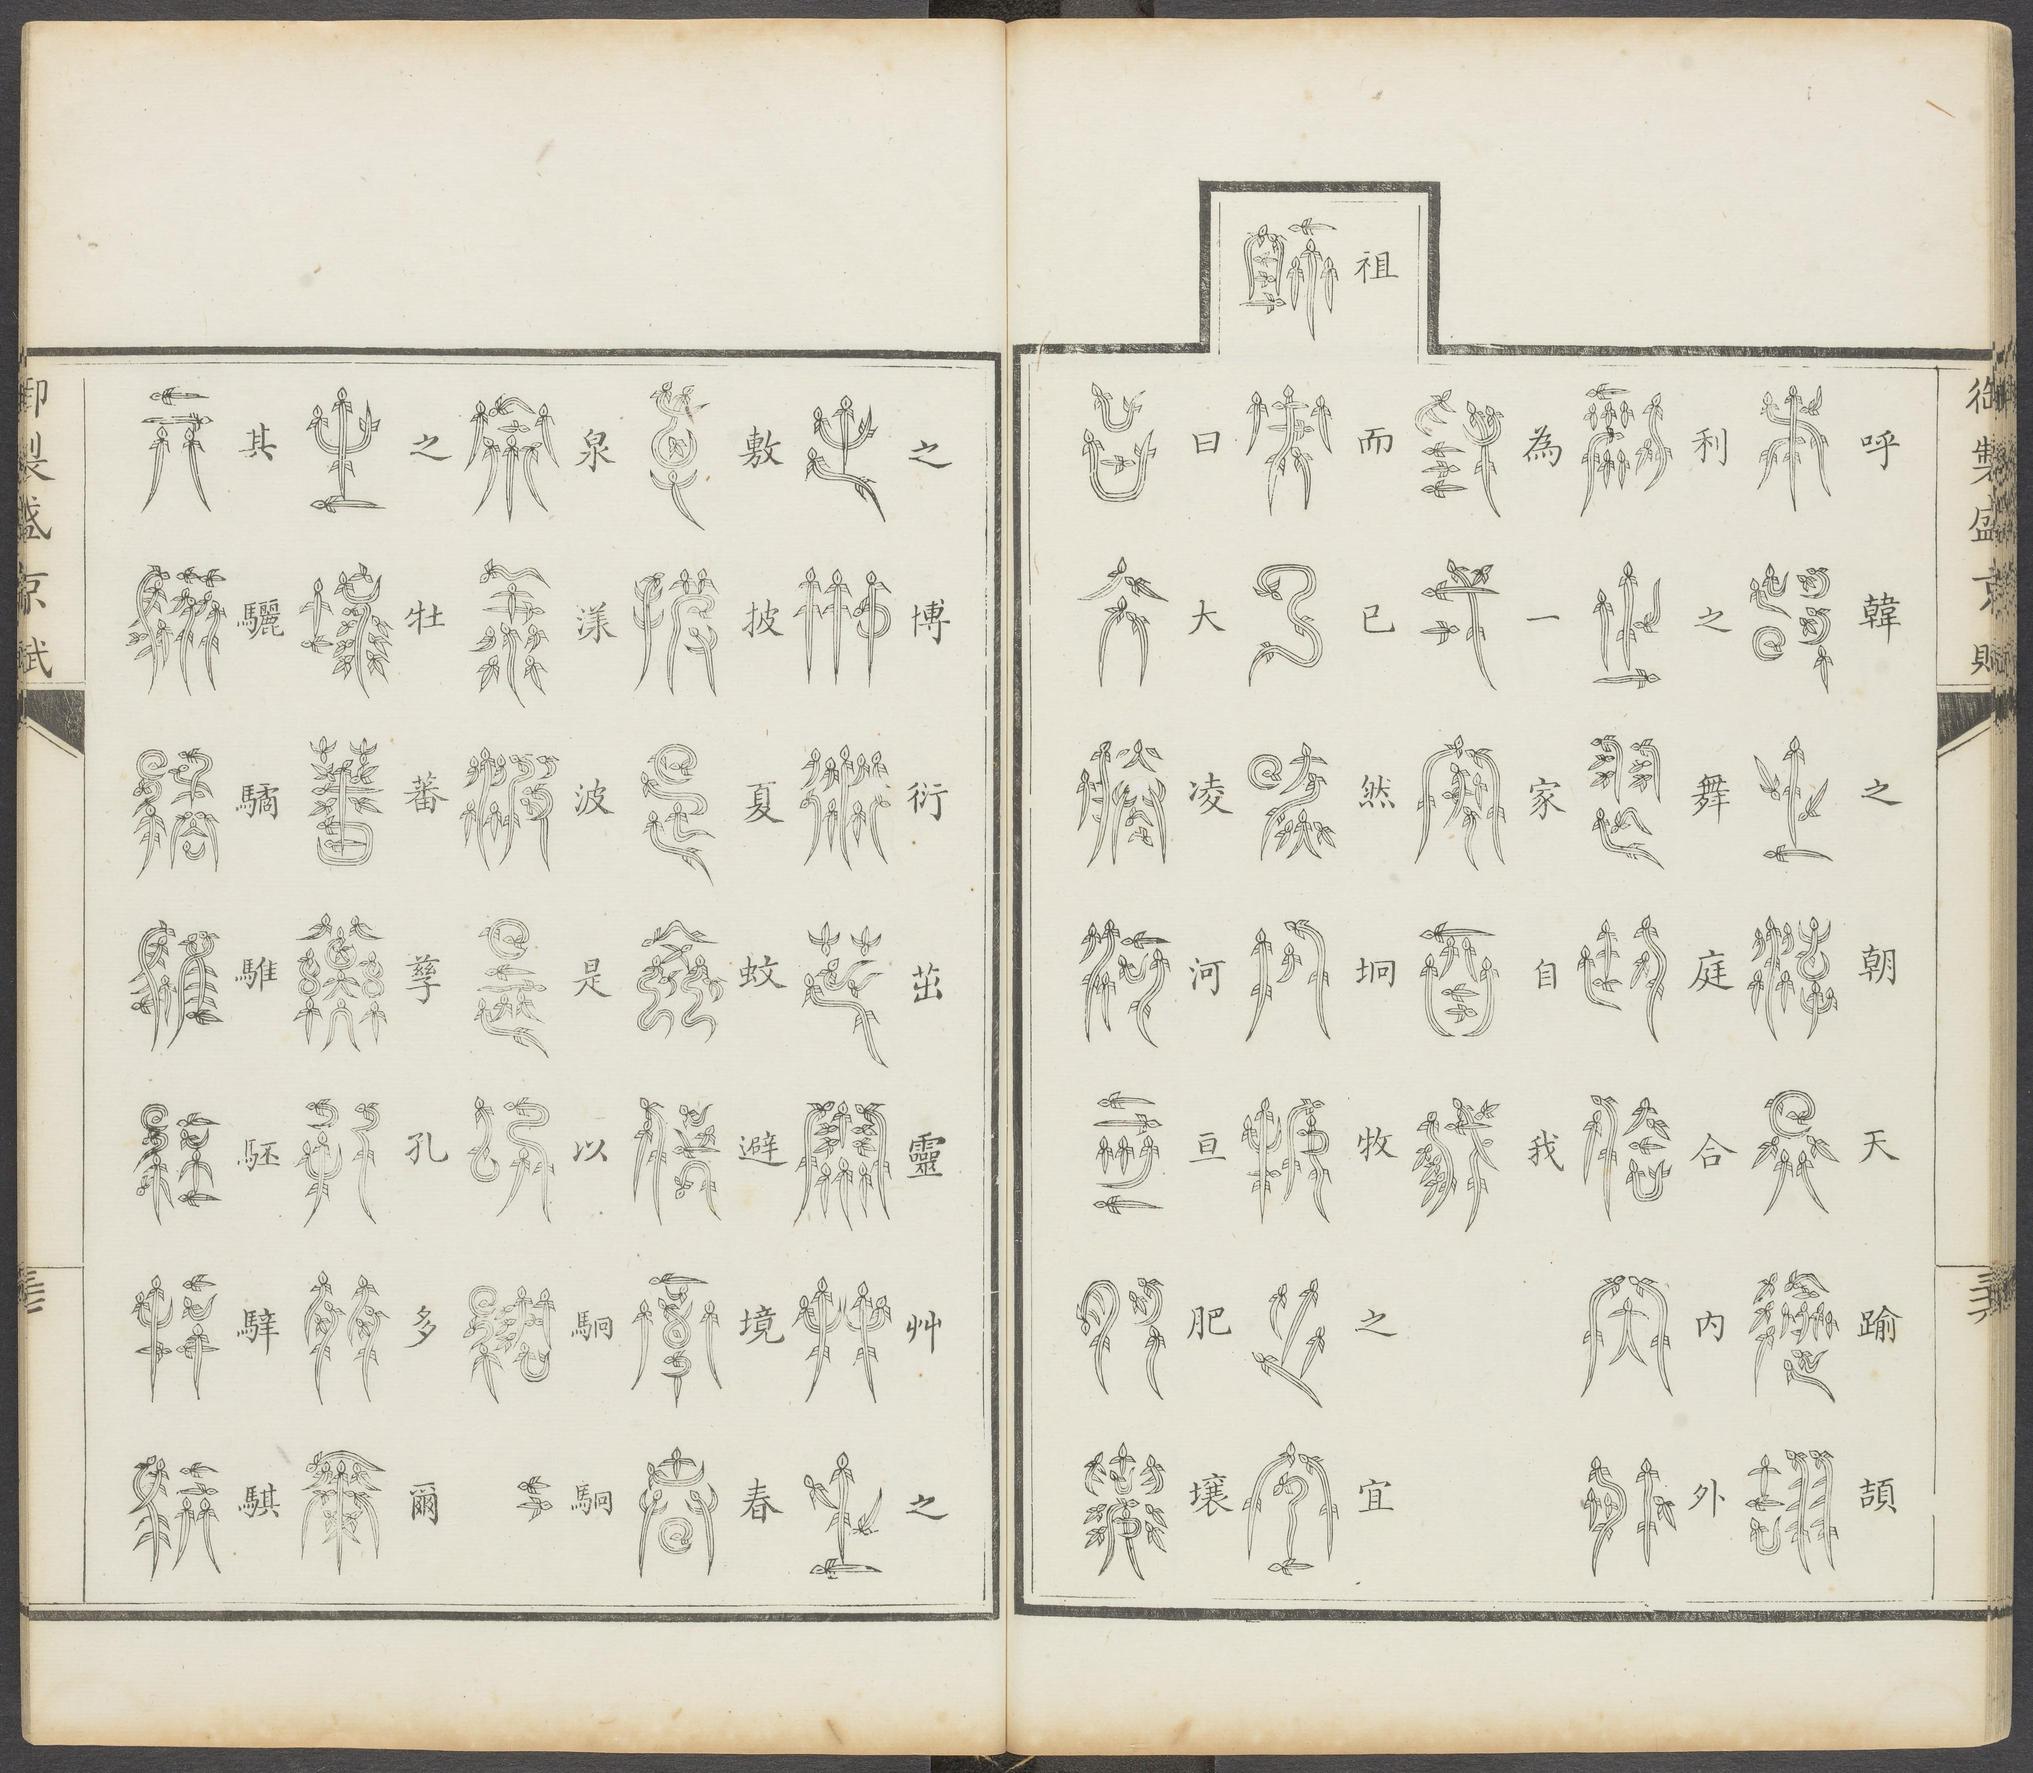 御製盛京賦
呼韓之朝天踰頡
利之舞庭合內外
為一家自我
祖
而已然坰牧之宜
曰大凌河亘肥壤
之博衍茁靈艸之
敷披夏蚊避境春
泉漾波是以駉駉
之牡蕃孳孔多爾
其驪驈騅駓騂騏
御製盛京賦